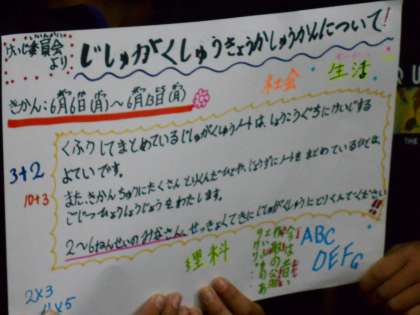 けいじ委員会
より
じしゅがくしゅうきょうかしゅうかんについて!
きかん:6月6日(月)～6月13日(月)
社会
生活
3+2
10+3
くふうしてまとめているじしゅがくしゅうノートは、しょうこうぐちにけいじする
よていです。
また、きかんちゅうにたくさんとりくんだひとや、じょうずにノートをまとめているひとは、
ごじつひょうしょうじょうをわたします。
2～6ねんせいのみなさん、せっきょくてきにじしゅがくしゅうにとりくんでください!!
理科
ABC
DEFG
2×3
4×5